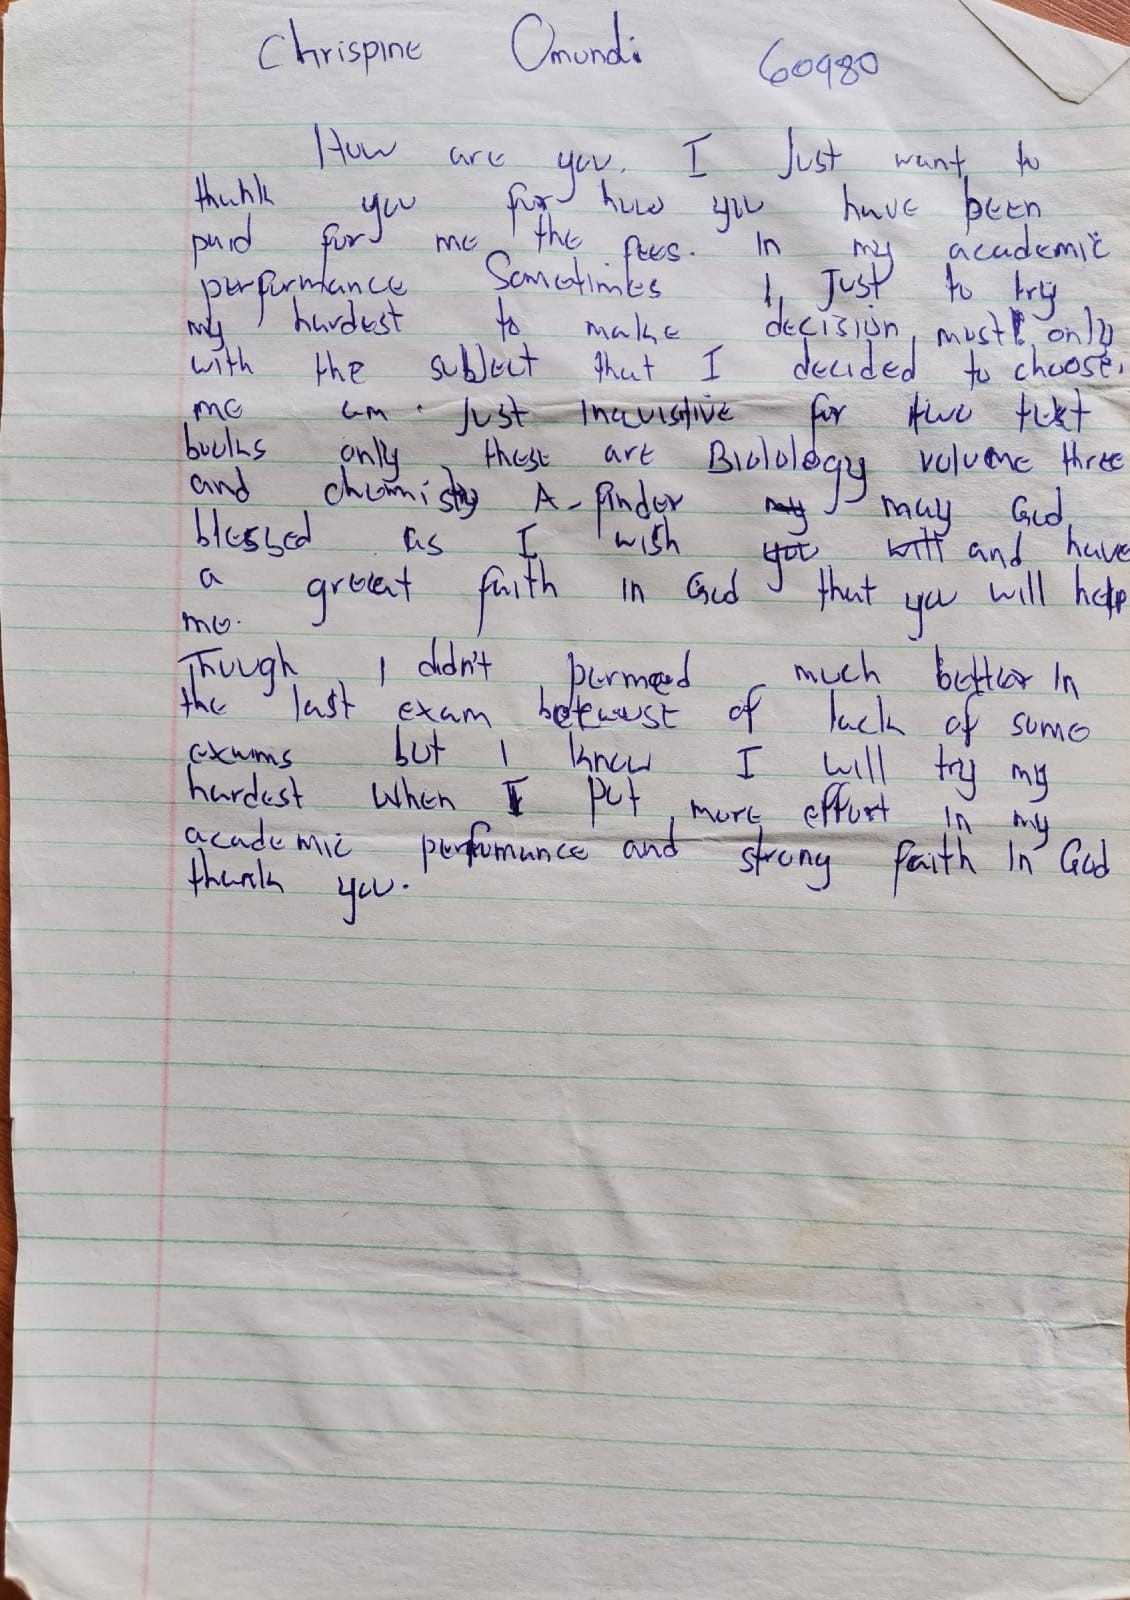 Chrispine Omondi 60980
How are you. I Just want to
thank you for how you have been
paid for me the fees. In my academic
performance Sometimes I Just to try
my hardest to make decision, most only
with the subject that I decided to choose,
me am Just inquisitive for two text
books only these are Biolology volume three
and chemistry A-finder may God
blessed as I wish and have
a great faith in God that you will help
me.
Though I didn't permeed much better in
the last exam because of lack of some
exams but I know I will try my
hardest when I put more effort in my
academic perfomance and strong faith in God
thank you.